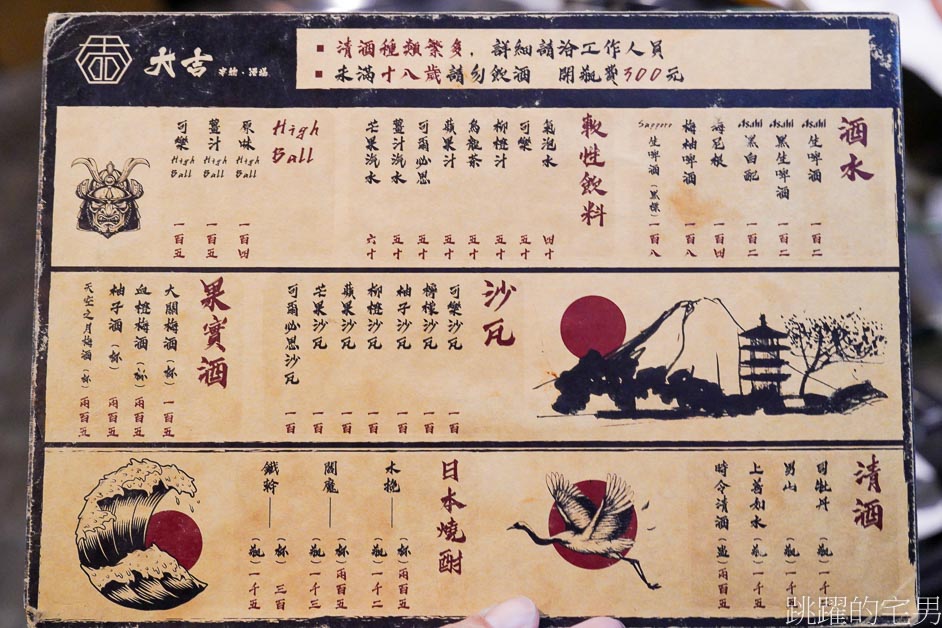 大吉
串燒・酒場
■ 清酒種類繁多，詳細請洽工作人員
■ 未滿十八歲請勿飲酒 開瓶費300元
酒水
Asahi 生啤酒 一百二
Asahi 黑生啤酒 一百二
Asahi 黑白配 一百二
海尼根 一百四
梅柚啤酒 一百八
Sapporo 生啤酒（黑標）一百八
軟性飲料
氣泡水 四十
可樂 五十
柳橙汁 五十
烏龍茶 五十
蘋果汁 五十
可爾必思 五十
薑汁汽水 五十
芒果汽水 六十
High Ball
原味 High Ball 一百四
薑汁 High Ball 一百五
可樂 High Ball 一百五
沙瓦
可樂沙瓦 一百
檸檬沙瓦 一百
柚子沙瓦 一百
柳橙沙瓦 一百
蘋果沙瓦 一百
芒果沙瓦 一百
可爾必思沙瓦 一百
果實酒
大關梅酒（杯）一百五
血橙梅酒（杯）兩百五
柚子酒（杯）兩百五
天空之月梅酒（杯）兩百五
清酒
司牡丹（瓶）一千
男山（瓶）一千五
上善如水（瓶）一千五
時令清酒（盅）兩百五
日本燒酎
木挽（杯）兩百五
（瓶）一千二
閻魔（杯）兩百五
（瓶）一千三
鐵幹（杯）三百
（瓶）一千五
跳躍的宅男